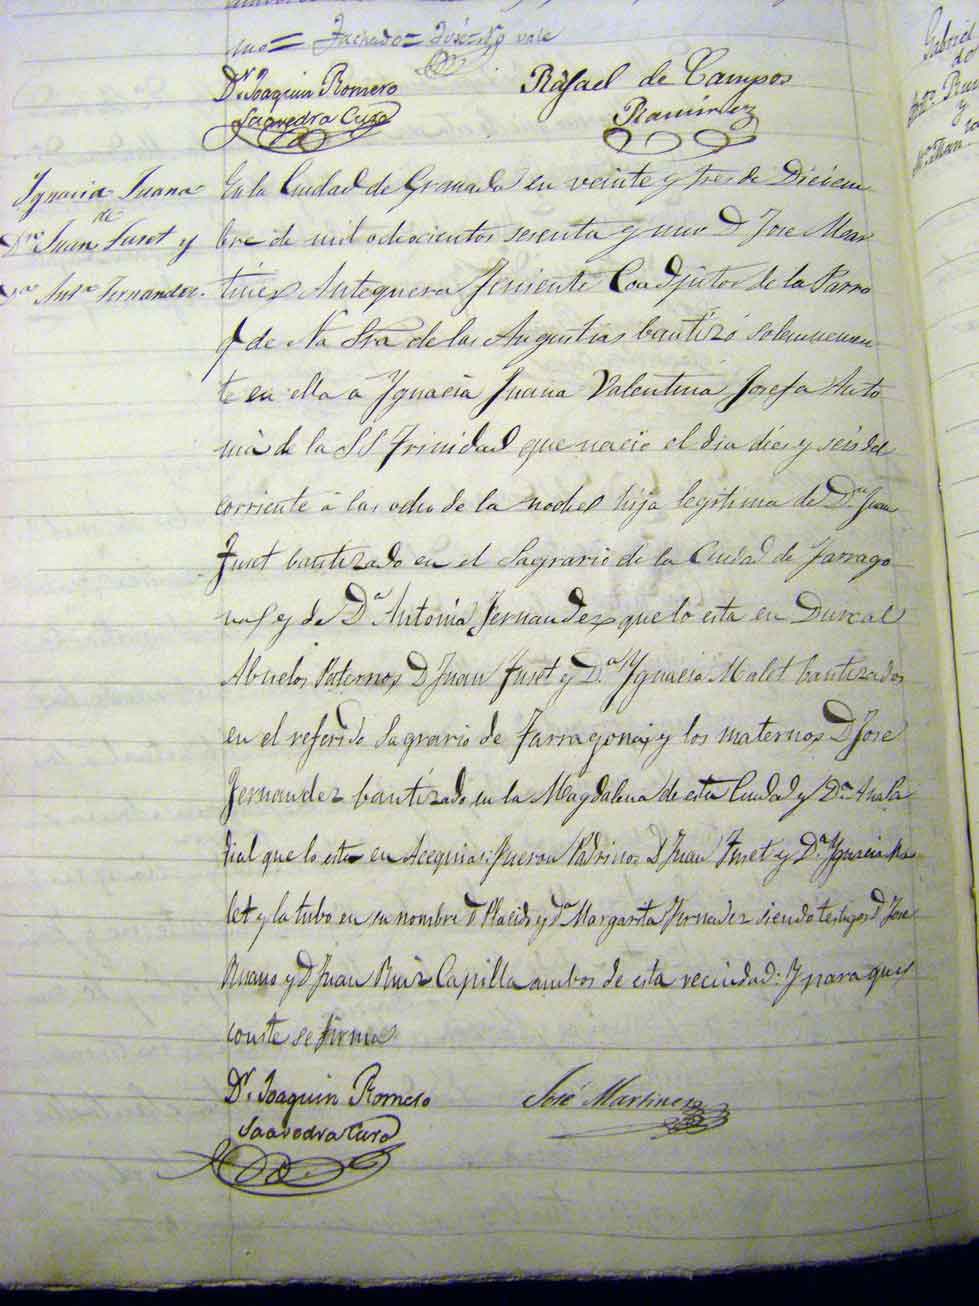 mo = Tachado = José = no vale
Dr. Joaquin Romero
Saavedra Cura
Rafael de Campos
Ramirez
Gabriel
do
y
Ygnacia Juana
de
Dn. Juan Fuset y
Da. Anta. Fernandez.
En la Ciudad de Granada en veinte y tres de Diciem
bre de mil ochocientos sesenta y uno D. Jose Mar
tinez Antequera Teniente Coadjutor de la Parro
qa. de Na. Sra. de las Angustias bautizó solemnemen
te en ella a Ygnacia Juana Valentina Josefa Anto
nia de la SS Trinidad que nació el dia diez y seis del
corriente á las ocho de la noche hija legitima de Dn. Juan
Fuset bautizado en el Sagrario de la Ciudad de Tarrago
na y de Da. Antonia Fernandez que lo esta en Durcal
Abuelos Paternos D. Juan Fuset y Da. Ygnacia Malet bautizados
en el referido Sagrario de Tarragona; y los maternos D. Jose
Fernandez bautizado en la Magdalena de esta Ciudad y Da. Ana Pa
dial que lo esta en Acequias: fueron Padrinos D. Juan Fuset y Da. Ygnacia Ma
let y la tubo en su nombre D. Placido y Da. Margarita Fernadez siendo testigos D. Jose
Ruano y D. Juan Ruiz Capilla ambos de esta vecindad: Y para que
conste se firma
Dr. Joaquin Romero
Saavedra Cura
José Martinez